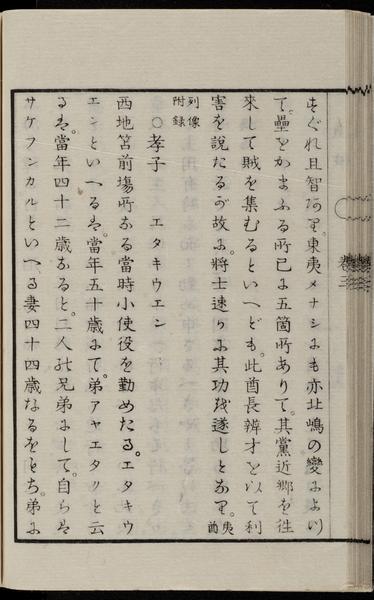 すぐれ且智あり。東夷メナシにも亦此嶋の變によつ
て。壘をかまふる所已に五箇所ありて。其黨近郷を往
來して賊を集むるといへども。此酋長辨才を以て利
害を説たるが故に。將士速かに其功を遂しとなり。夷酋
列像附録
○孝子 エタキウエン
西地笘前場所なる當時小使役を勤めたる。エタキウ
エンといへるは。當年五十歳にて。弟アヤエタクと云
るは。當年四十二歳なると。二人の兄弟にして。自らは
サケフンカルといへる妻四十四歳なるをもち。弟に
卷三